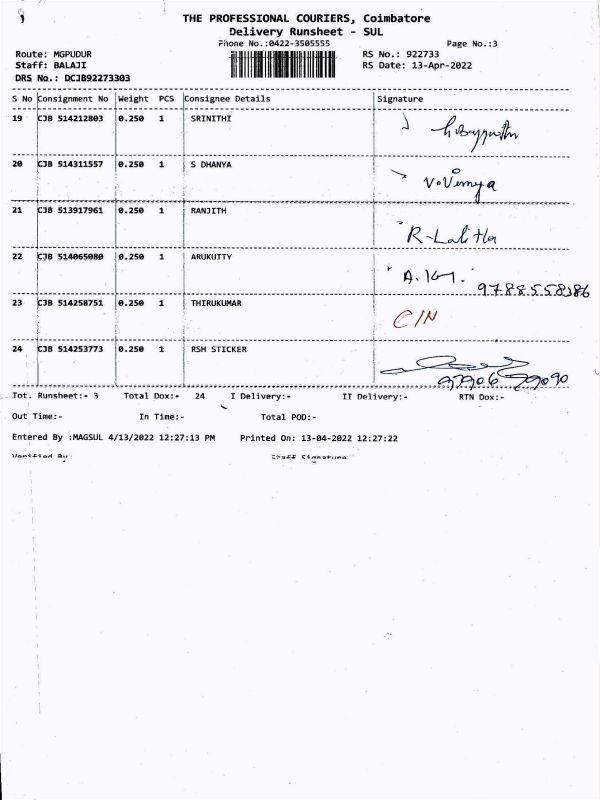 THE PROFESSIONAL COURIERS, Coimbatore
Delivery Runsheet - SUL
Phone No.:0422-3505555 Page No.:3
Route: MGPUDUR RS No.: 922733
Staff: BALAJI RS Date: 13-Apr-2022
DRS No.: DCJB92273303
S No Consignment No Weight PCS Consignee Details Signature
19 CJB 514212803 0.250 1 SRINITHI
20 CJB 514311557 0.250 1 S DHANYA
V.Vimya
21 CJB 513917961 0.250 1 RANJITH
R-Lalitha
22 CJB 514065080 0.250 1 ARUKUTTY
A.
9788558386
23 CJB 514258751 0.250 1 THIRUKUMAR
C/N
24 CJB 514253773 0.250 1 RSH STICKER
Tot. Runsheet:- 3 Total Dox:- 24 I Delivery:- II Delivery:- RTN Dox:-
Out Time:- In Time:- Total POD:-
Entered By :MAGSUL 4/13/2022 12:27:13 PM Printed On: 13-04-2022 12:27:22
Verified By Staff Signature